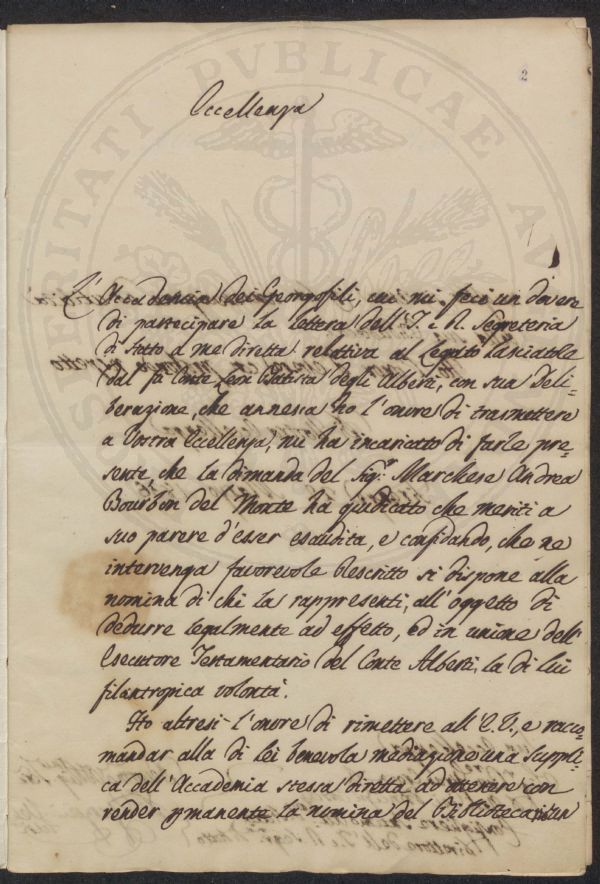 2
Eccellenza
L'Accademia dei Georgofili, cui mi feci un dovere
di partecipare la lettera dell'I. e R. Segreteria
di Stato a me diretta relativa al Legato lasciatole
dal fù Conte Leon Batista degli Alberti, con sua Deli=
berazione, che annessa ho l'onore di trasmettere
a Vostra Eccellenza, mi ha incaricato di farle pre=
sente, che la dimanda del Sig.r Marchese Andrea
Bourbon del Monte ha giudicato che meriti a
suo parere d'esser esaudita, e confidando, che ne
intervenga favorevole Rescritto si dispone alla
nomina di chi la rappresenti, all'oggetto di
dedurre legalmente ad effetto, ed in unione dell'
Esecutore Testamentario del Conte Alberti, la di lui
filantropica volontà.
Ho altresì l'onore di rimettere all'E.V., e racco=
mandar alla di lei benevola mediazione una suppli=
ca dell'Accademia stessa diretta ad ottenere con
render permanente la nomina del Bibliotecario un
SPERITATI PVBLICAE AV